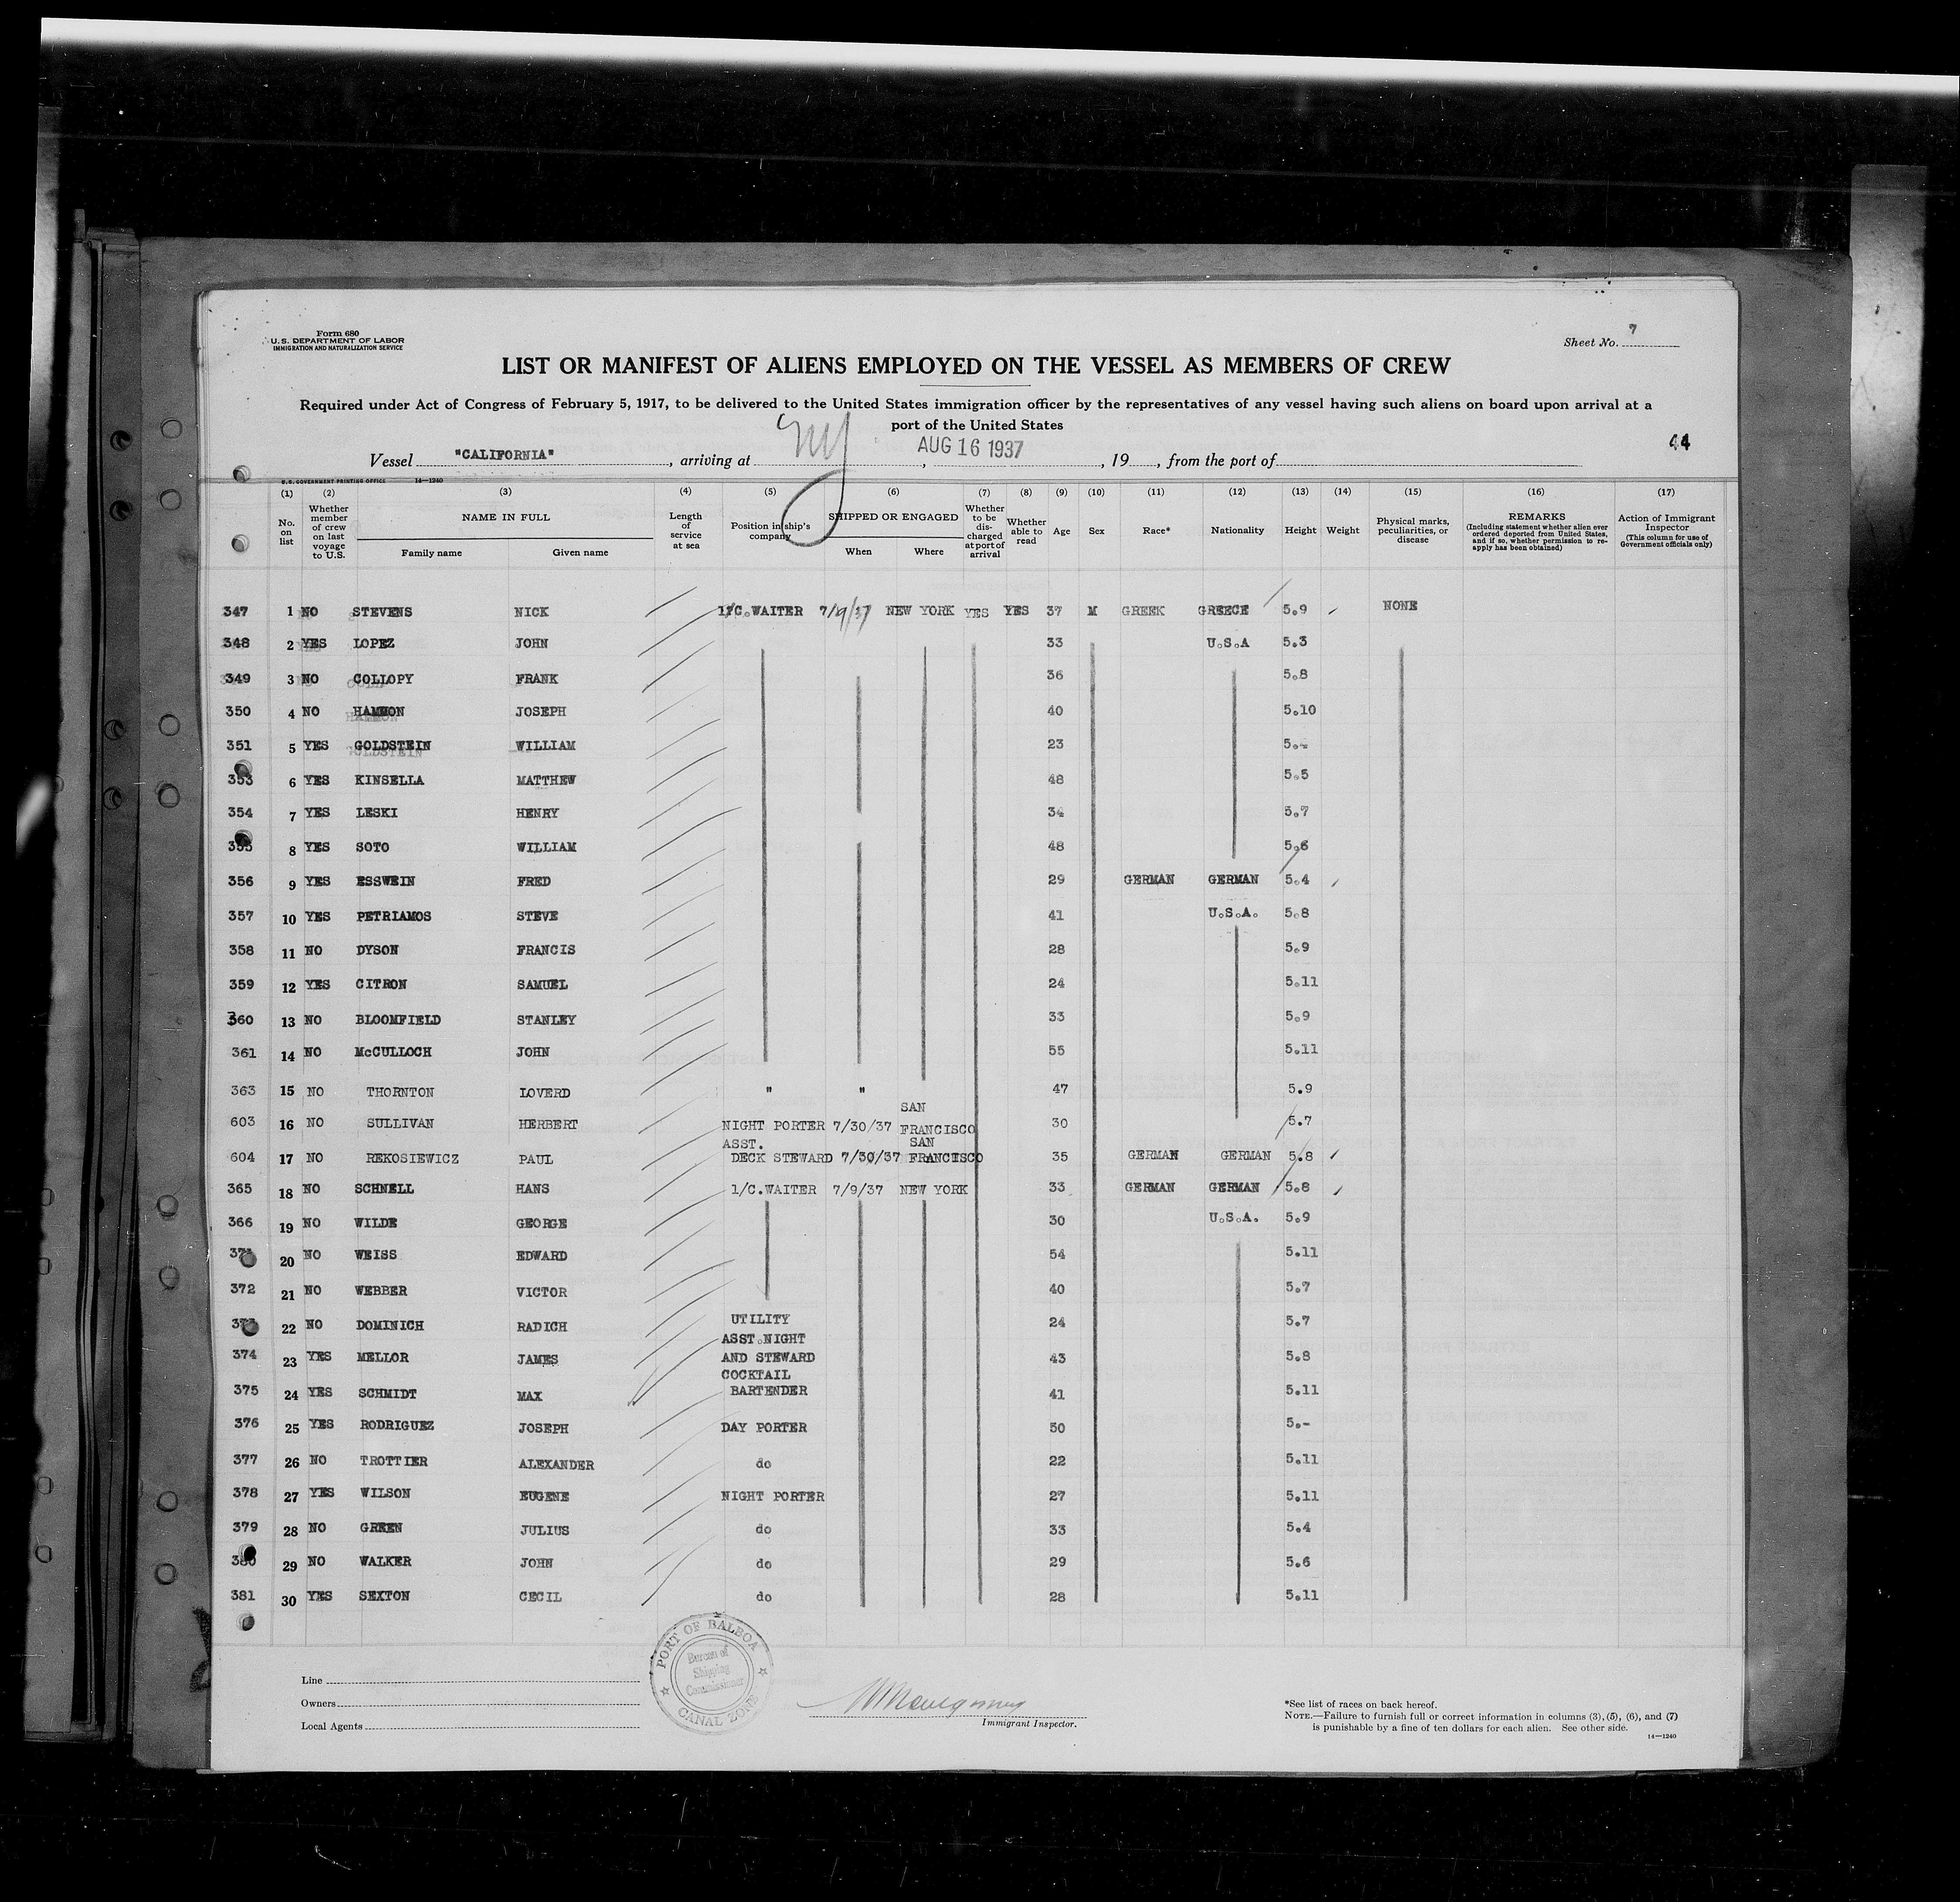 Form 680
U. S. DEPARTMENT OF LABOR
IMMIGRATION AND NATURALIZATION SERVICE
Sheet No. 7
LIST OR MANIFEST OF ALIENS EMPLOYED ON THE VESSEL AS MEMBERS OF CREW
Required under Act of Congress of February 5, 1917, to be delivered to the United States immigration officer by the representatives of any vessel having such aliens on board upon arrival at a
port of the United States
44
Vessel "CALIFORNIA", arriving at NY, AUG 16 1937, 19, from the port of
U.S. GOVERNMENT PRINTING OFFICE 14—1240
(1) (2) (3) (4) (5) (6) (7) (8) (9) (10) (11) (12) (13) (14) (15) (16) (17)
No. on list
Whether member of crew on last voyage to U.S.
NAME IN FULL
Family name Given name
Length of service at sea
Position in ship's company
SHIPPED OR ENGAGED
When Where
Whether to be discharged at port of arrival
Whether able to read
Age
Sex
Race*
Nationality
Height
Weight
Physical marks, peculiarities, or disease
REMARKS
(Including statement whether alien ever ordered deported from United States, and if so, whether permission to re-apply has been obtained)
Action of Immigrant Inspector
(This column for use of Government officials only)
347 1 NO STEVENS NICK 1/C.WAITER 7/9/37 NEW YORK YES YES 37 M GREEK GREECE 5.9 NONE
348 2 YES LOPEZ JOHN 33 U.S.A 5.3
349 3 NO COLLOPY FRANK 36 5.8
350 4 NO HAMMON JOSEPH 40 5.10
351 5 YES GOLDSTEIN WILLIAM 23 5.-
353 6 YES KINSELLA MATTHEW 48 5.5
354 7 YES LESKI HENRY 34 5.7
355 8 YES SOTO WILLIAM 48 5.6
356 9 YES ESSWEIN FRED 29 GERMAN GERMAN 5.4
357 10 YES PETRIAMOS STEVE 41 U.S.A. 5.8
358 11 NO DYSON FRANCIS 28 5.9
359 12 YES CITRON SAMUEL 24 5.11
360 13 NO BLOOMFIELD STANLEY 33 5.9
361 14 NO McCULLOCH JOHN 55 5.11
363 15 NO THORNTON LOVERD " " 47 5.9
603 16 NO SULLIVAN HERBERT NIGHT PORTER 7/30/37 SAN FRANCISCO 30 5.7
604 17 NO REKOSIEWICZ PAUL ASST. DECK STEWARD 7/30/37 SAN FRANCISCO 35 GERMAN GERMAN 5.8
365 18 NO SCHNELL HANS 1/C.WAITER 7/9/37 NEW YORK 33 GERMAN GERMAN 5.8
366 19 NO WILDE GEORGE 30 U.S.A. 5.9
371 20 NO WEISS EDWARD 54 5.11
372 21 NO WEBBER VICTOR 40 5.7
373 22 NO DOMINICH RADICH UTILITY 24 5.7
374 23 YES MELLOR JAMES ASST.NIGHT AND STEWARD 43 5.8
375 24 YES SCHMIDT MAX COCKTAIL BARTENDER 41 5.11
376 25 YES RODRIGUEZ JOSEPH DAY PORTER 50 5.-
377 26 NO TROTTIER ALEXANDER do 22 5.11
378 27 YES WILSON EUGENE NIGHT PORTER 27 5.11
379 28 NO GREEN JULIUS do 33 5.4
380 29 NO WALKER JOHN do 29 5.6
381 30 YES SEXTON CECIL do 28 5.11
Line
Owners
Local Agents
PORT OF BALBOA
Bureau of
Shipping
Commissioner
CANAL ZONE
Immigrant Inspector.
*See list of races on back hereof.
NOTE.—Failure to furnish full or correct information in columns (3), (5), (6), and (7)
is punishable by a fine of ten dollars for each alien. See other side.
14—1240